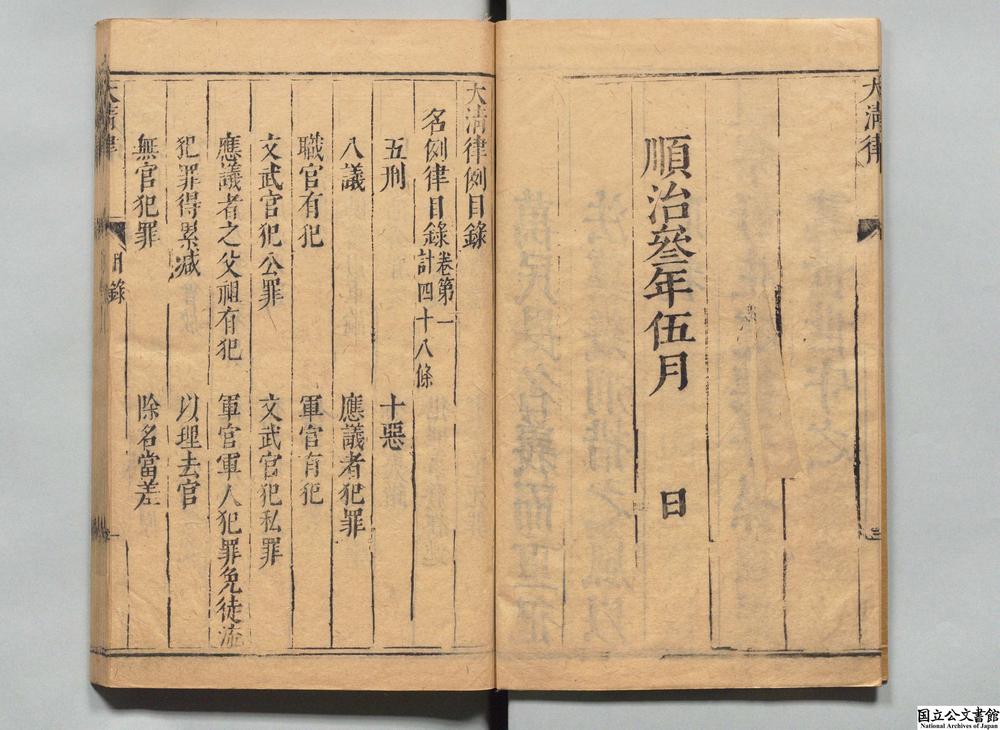 大淸律
順治叄年伍月 日
大淸律例目錄
名例律目錄 卷第一 計四十八條
五刑 十惡
八議 應議者犯罪
職官有犯 軍官有犯
文武官犯公罪 文武官犯私罪
應議者之父祖有犯 軍官軍人犯罪免徒流
犯罪得累减 以理去官
無官犯罪 除名當差
大淸律 目錄 一
国立公文書館
National Archives of Japan